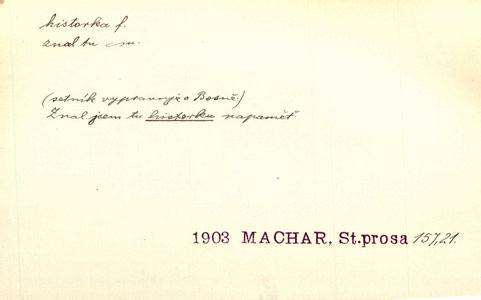 historka f.
znal tu
(setník vypravuje o Bosně.)
Znal jsem tu historku napaměť
1903 MACHAR, St.prosa 157,21.